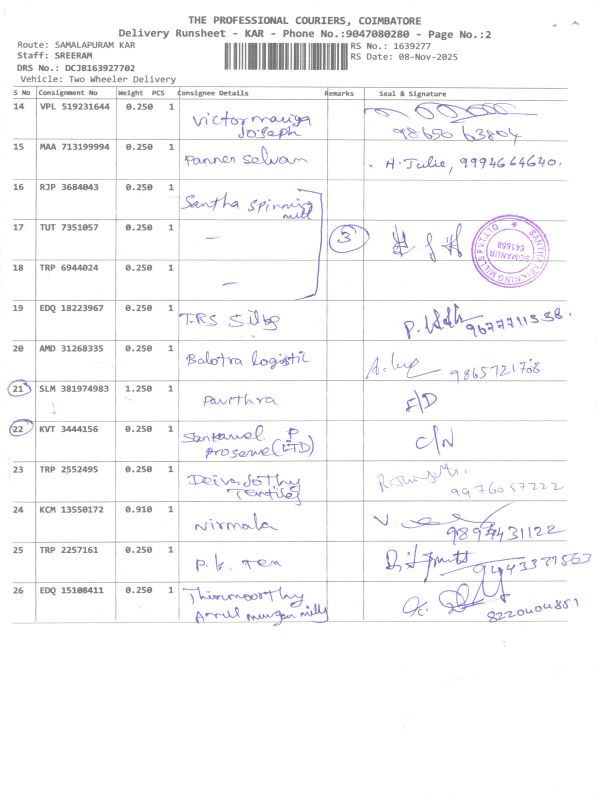 THE PROFESSIONAL COURIERS, COIMBATORE
Delivery Runsheet - KAR - Phone No.:9047080280 - Page No.:2
Route: SAMALAPURAM KAR
RS No.: 1639277
Staff: SREERAM
RS Date: 08-Nov-2025
DRS No.: DCJB163927702
Vehicle: Two Wheeler Delivery
S No Consignment No Weight PCS Consignee Details Remarks Seal & Signature
14 VPL 519231644 0.250 1 Victormariya
Joseph 98650 63804
15 MAA 713199994 0.250 1 Panner Selvan H. Julie, 9994664640.
16 RJP 3684043 0.250 1 Santha Spinning
mill
17 TUT 7351057 0.250 1 - 3
SANTHA SPINNING MILLS PVT.LTD
SOMANUR
641668
18 TRP 6944024 0.250 1 -
19 EDQ 18223967 0.250 1 T.RS Silks 9677711338.
20 AMD 31268335 0.250 1 Balotra Logistic 9865721708
21 SLM 381974983 1.250 1 Pavithra
22 KVT 3444156 0.250 1 P C/N
(LTD)
23 TRP 2552495 0.250 1 Deiva Jothy
Textiles 9976057222
24 KCM 13550172 0.910 1 Nirmala
9894431122
25 TRP 2257161 0.250 1 P.K. Tex
26 EDQ 15108411 0.250 1 Thirumoorthy
Arul murugan mills 8220404851